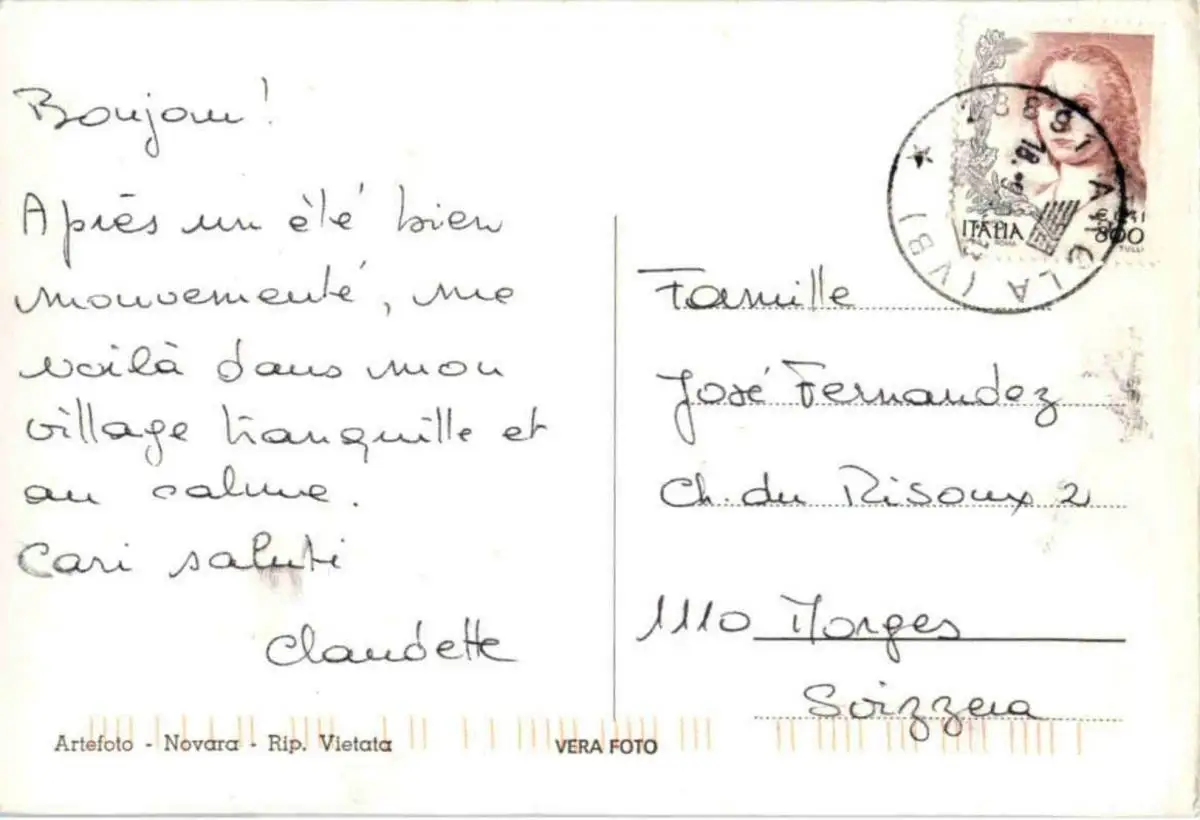 Bonjour!
Après un été bien
mouvementé, me
voilà dans mon
village tranquille et
au calme.
Cari saluti
Claudette
Famille
José Fernandez
Ch. du Risoux 2
1110 Morges
Svizzera
ITALIA
800
Artefoto - Novara - Rip. Vietata
VERA FOTO